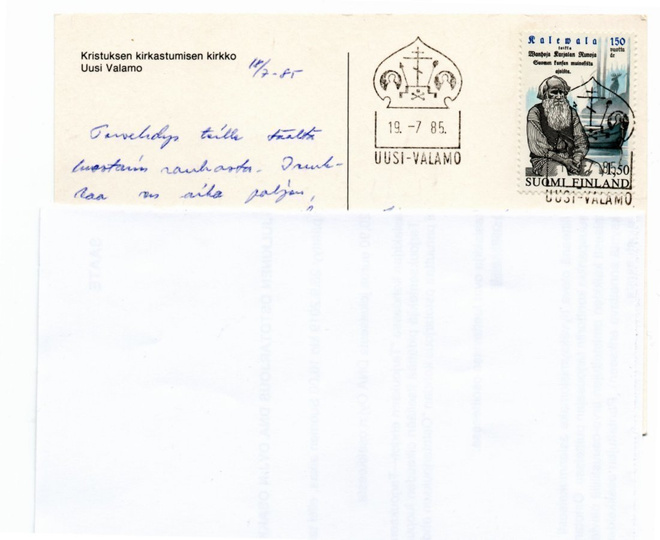 Kristuksen kirkastumisen kirkko
Uusi Valamo
18/7-85
Tervehdys teille täältä
luostarin rauhasta.
on aika paljon,
19. -7 85.
UUSI-VALAMO
Kalewala 150
taikka vuotta
Wanhoja Karjalan Runoja
Suomen kansan muinosista
ajoista.
1,50
SUOMI FINLAND
UUSI-VALAMO